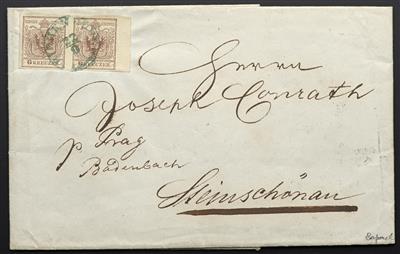 6 KREUZER 6 KREUZER
Herrn
Joseph Conrath
p Prag
Bodenbach
Steinschönau